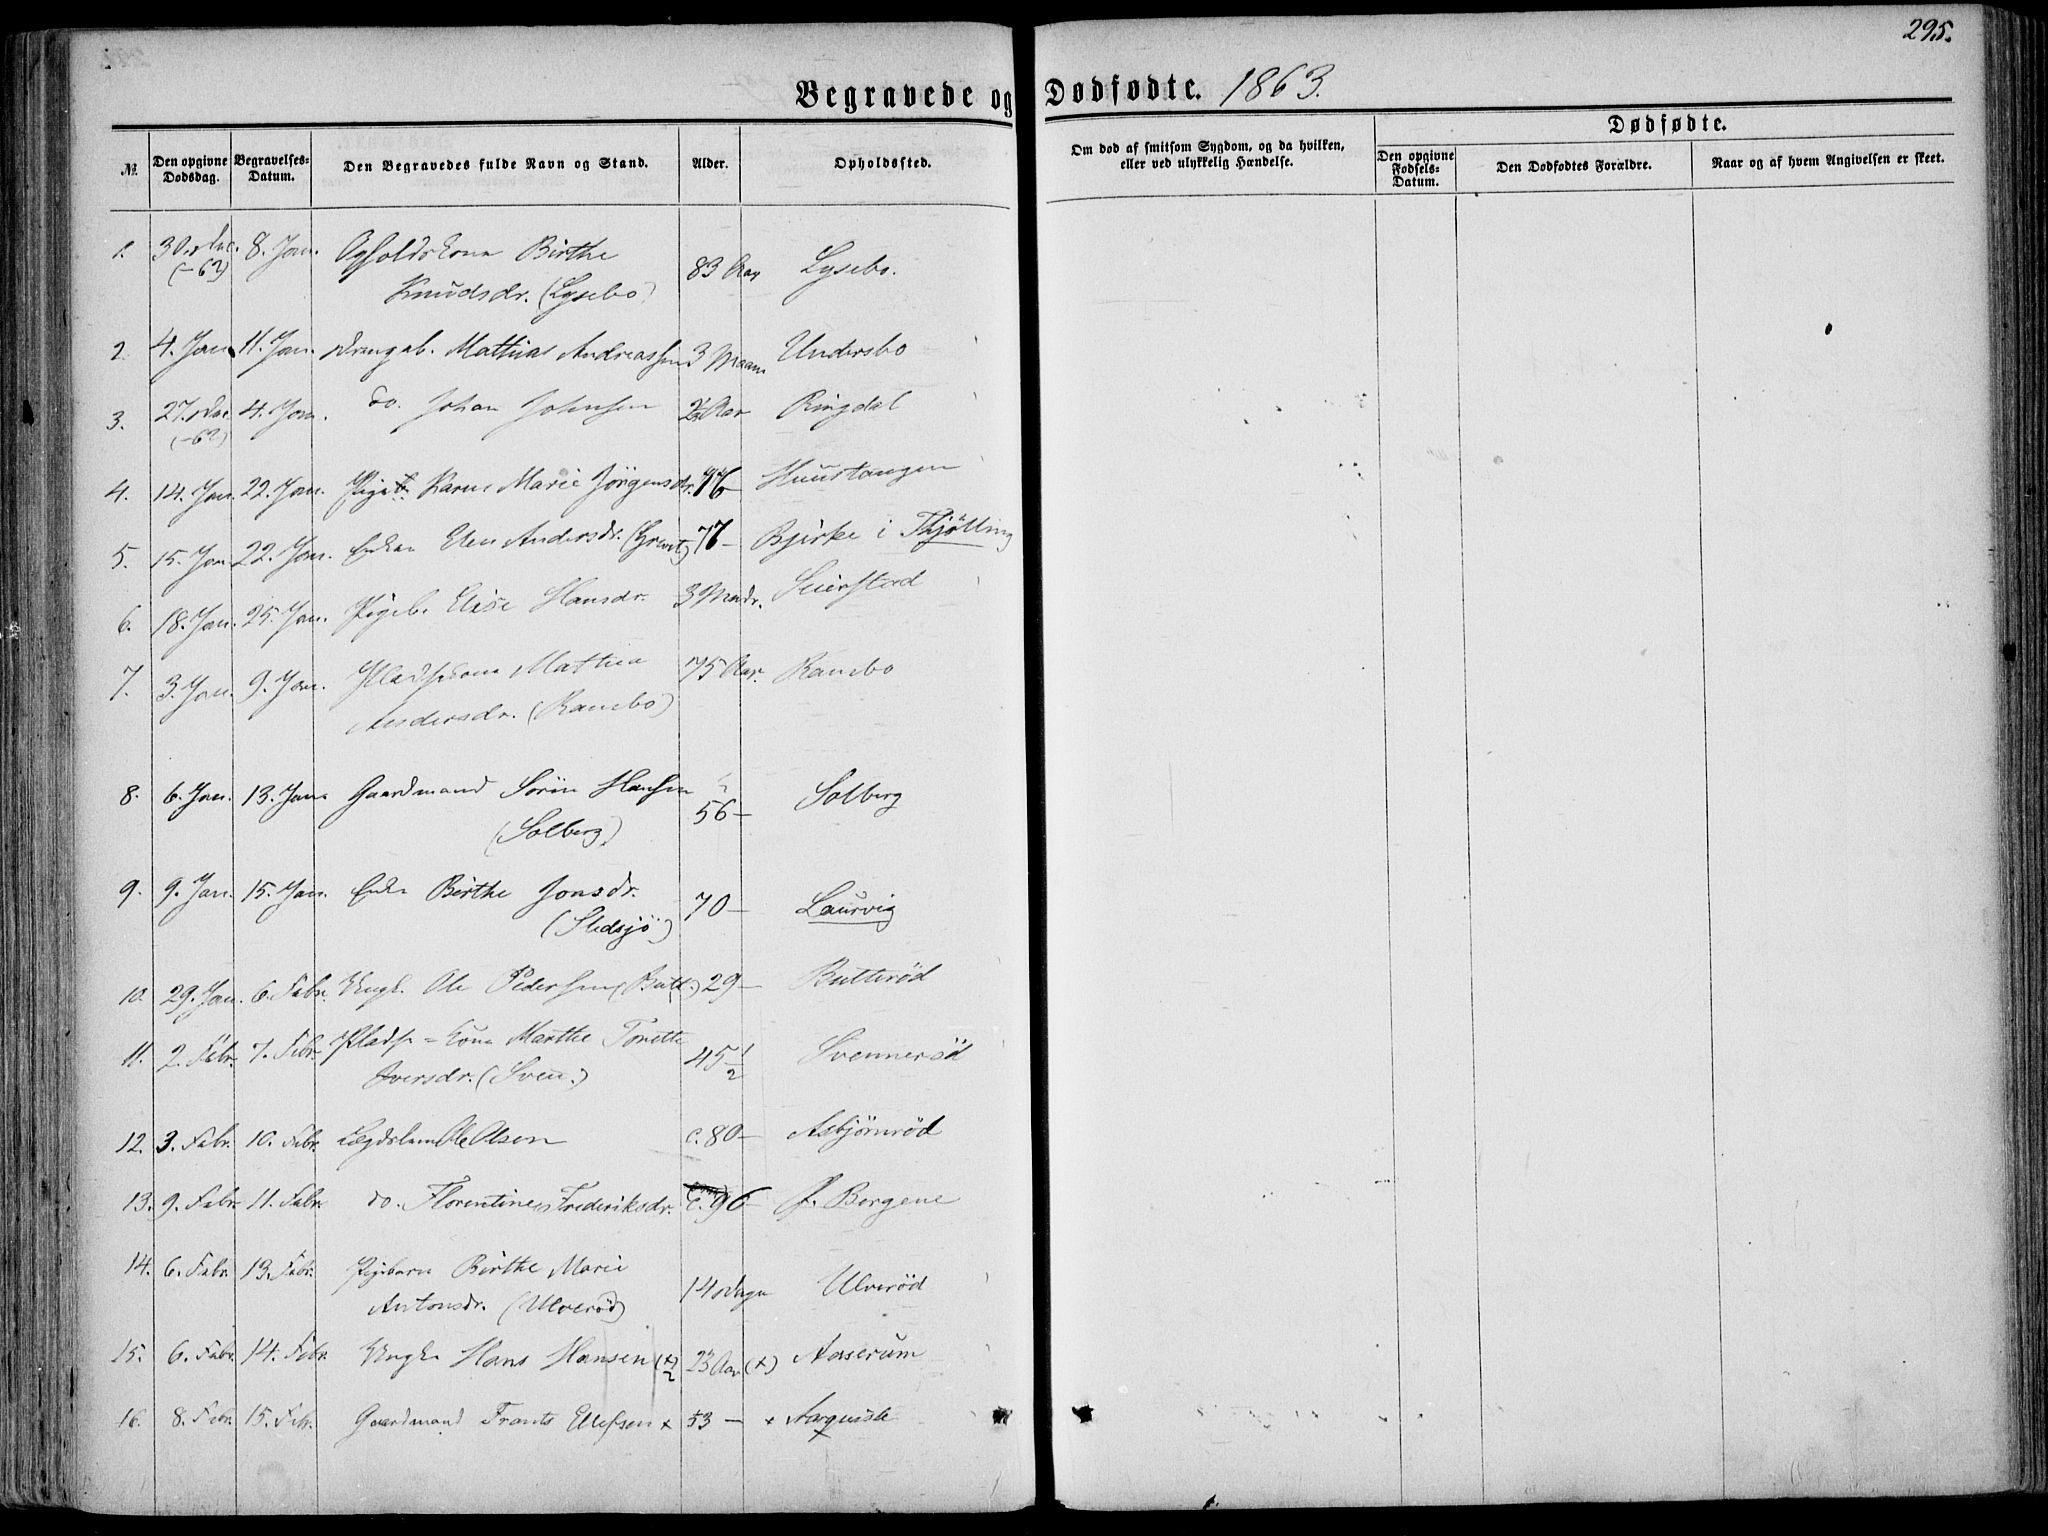 295.
Begravede og Dødfødte. 1863.
Dødfødte.
№ Den opgivne Dødsdag. Begravelses-Datum. Den Begravedes fulde Navn og Stand. Alder. Opholdssted. Om død af smitsom Sygdom, og da hvilken, eller ved ulykkelig Hændelse. Den opgivne Fødsels-Datum. Den Dødfødtes Forældre. Naar og af hvem Angivelsen er skeet.
1. 30. Dec. 8. Jan. Birthe 83 Aar Lysebo.
(-62) Knudsdr. (Lysebo)
2. 4. Jan. 11. Jan. Drengeb. Mathias Andreassen 3 Undersbo
3. 27. Dec. 4. Jan. do. Johan Johnsen Aar Ringdal
(-62)
4. 14. Jan. 22. Jan. Marie Jörgensdr. Huustangen
5. 15. Jan. 22. Jan. Enken Elen Andersdr. Bjirke i Thjölling
6. 18. Jan. 25. Jan. Pigeb. Elise Hansdr. 3 Mndr. Seierstad
7. 3. Jan. 9. Jan. Pladskone Mathea 75 Aar. Rambo
Andersdr. (Rambo)
8. 6. Jan. 13. Jan. Gaardmand Sörin Hansen 56 – Solberg
(Solberg)
9. 9. Jan. 15. Jan. Enke Birthe Jonsdr. 70 – Laurvig
10. 29. Jan. 6. Febr. Ungk. Ole Pedersen 29 – Butteröd
11. 2. Febr. 7. Febr. Plads-Kone Marthe Torette 45 1/2 Svenneröd
Iversdr. (Sven.)
12. 3. Febr. 10. Febr. Lægdslem Ole Olsen c. 80 – Asbjörnröd
13. 9. Febr. 11. Febr. do. Florentine Frederiksdr. c. 96 – Bergene
14. 6. Febr. 13. Febr. Pigebarn Birthe Marie 14 Dage Ulveröd
Antonsdr. (Ulveröd)
15. 6. Febr. 14. Febr. Ungk. Hans Hansen (x) 23 Aar (x) Aaserum
16. 8. Febr. 15. Febr. Gaardmand Frants Ellefsen x 53 – x